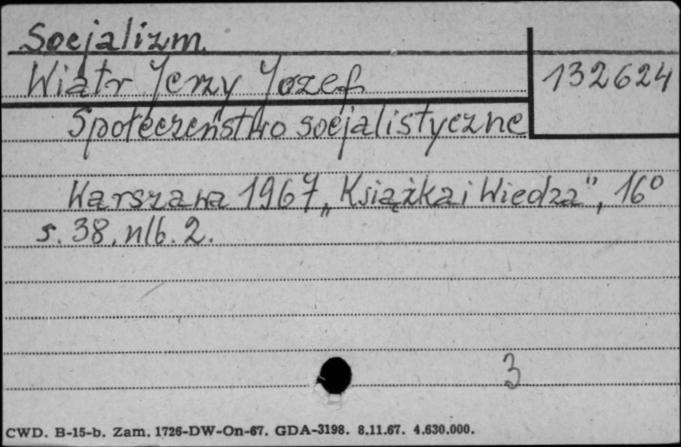 Socjalizm.
Wiatr Jerzy Jozef
132624
Społeczeństwo socjalistyczne
Warszawa 1967 „Książka i Wiedza”, 16°
s. 38, nlb. 2.
3
CWD. B-15-b. Zam. 1726-DW-On-67. GDA-3198. 8.11.67. 4.630.000.